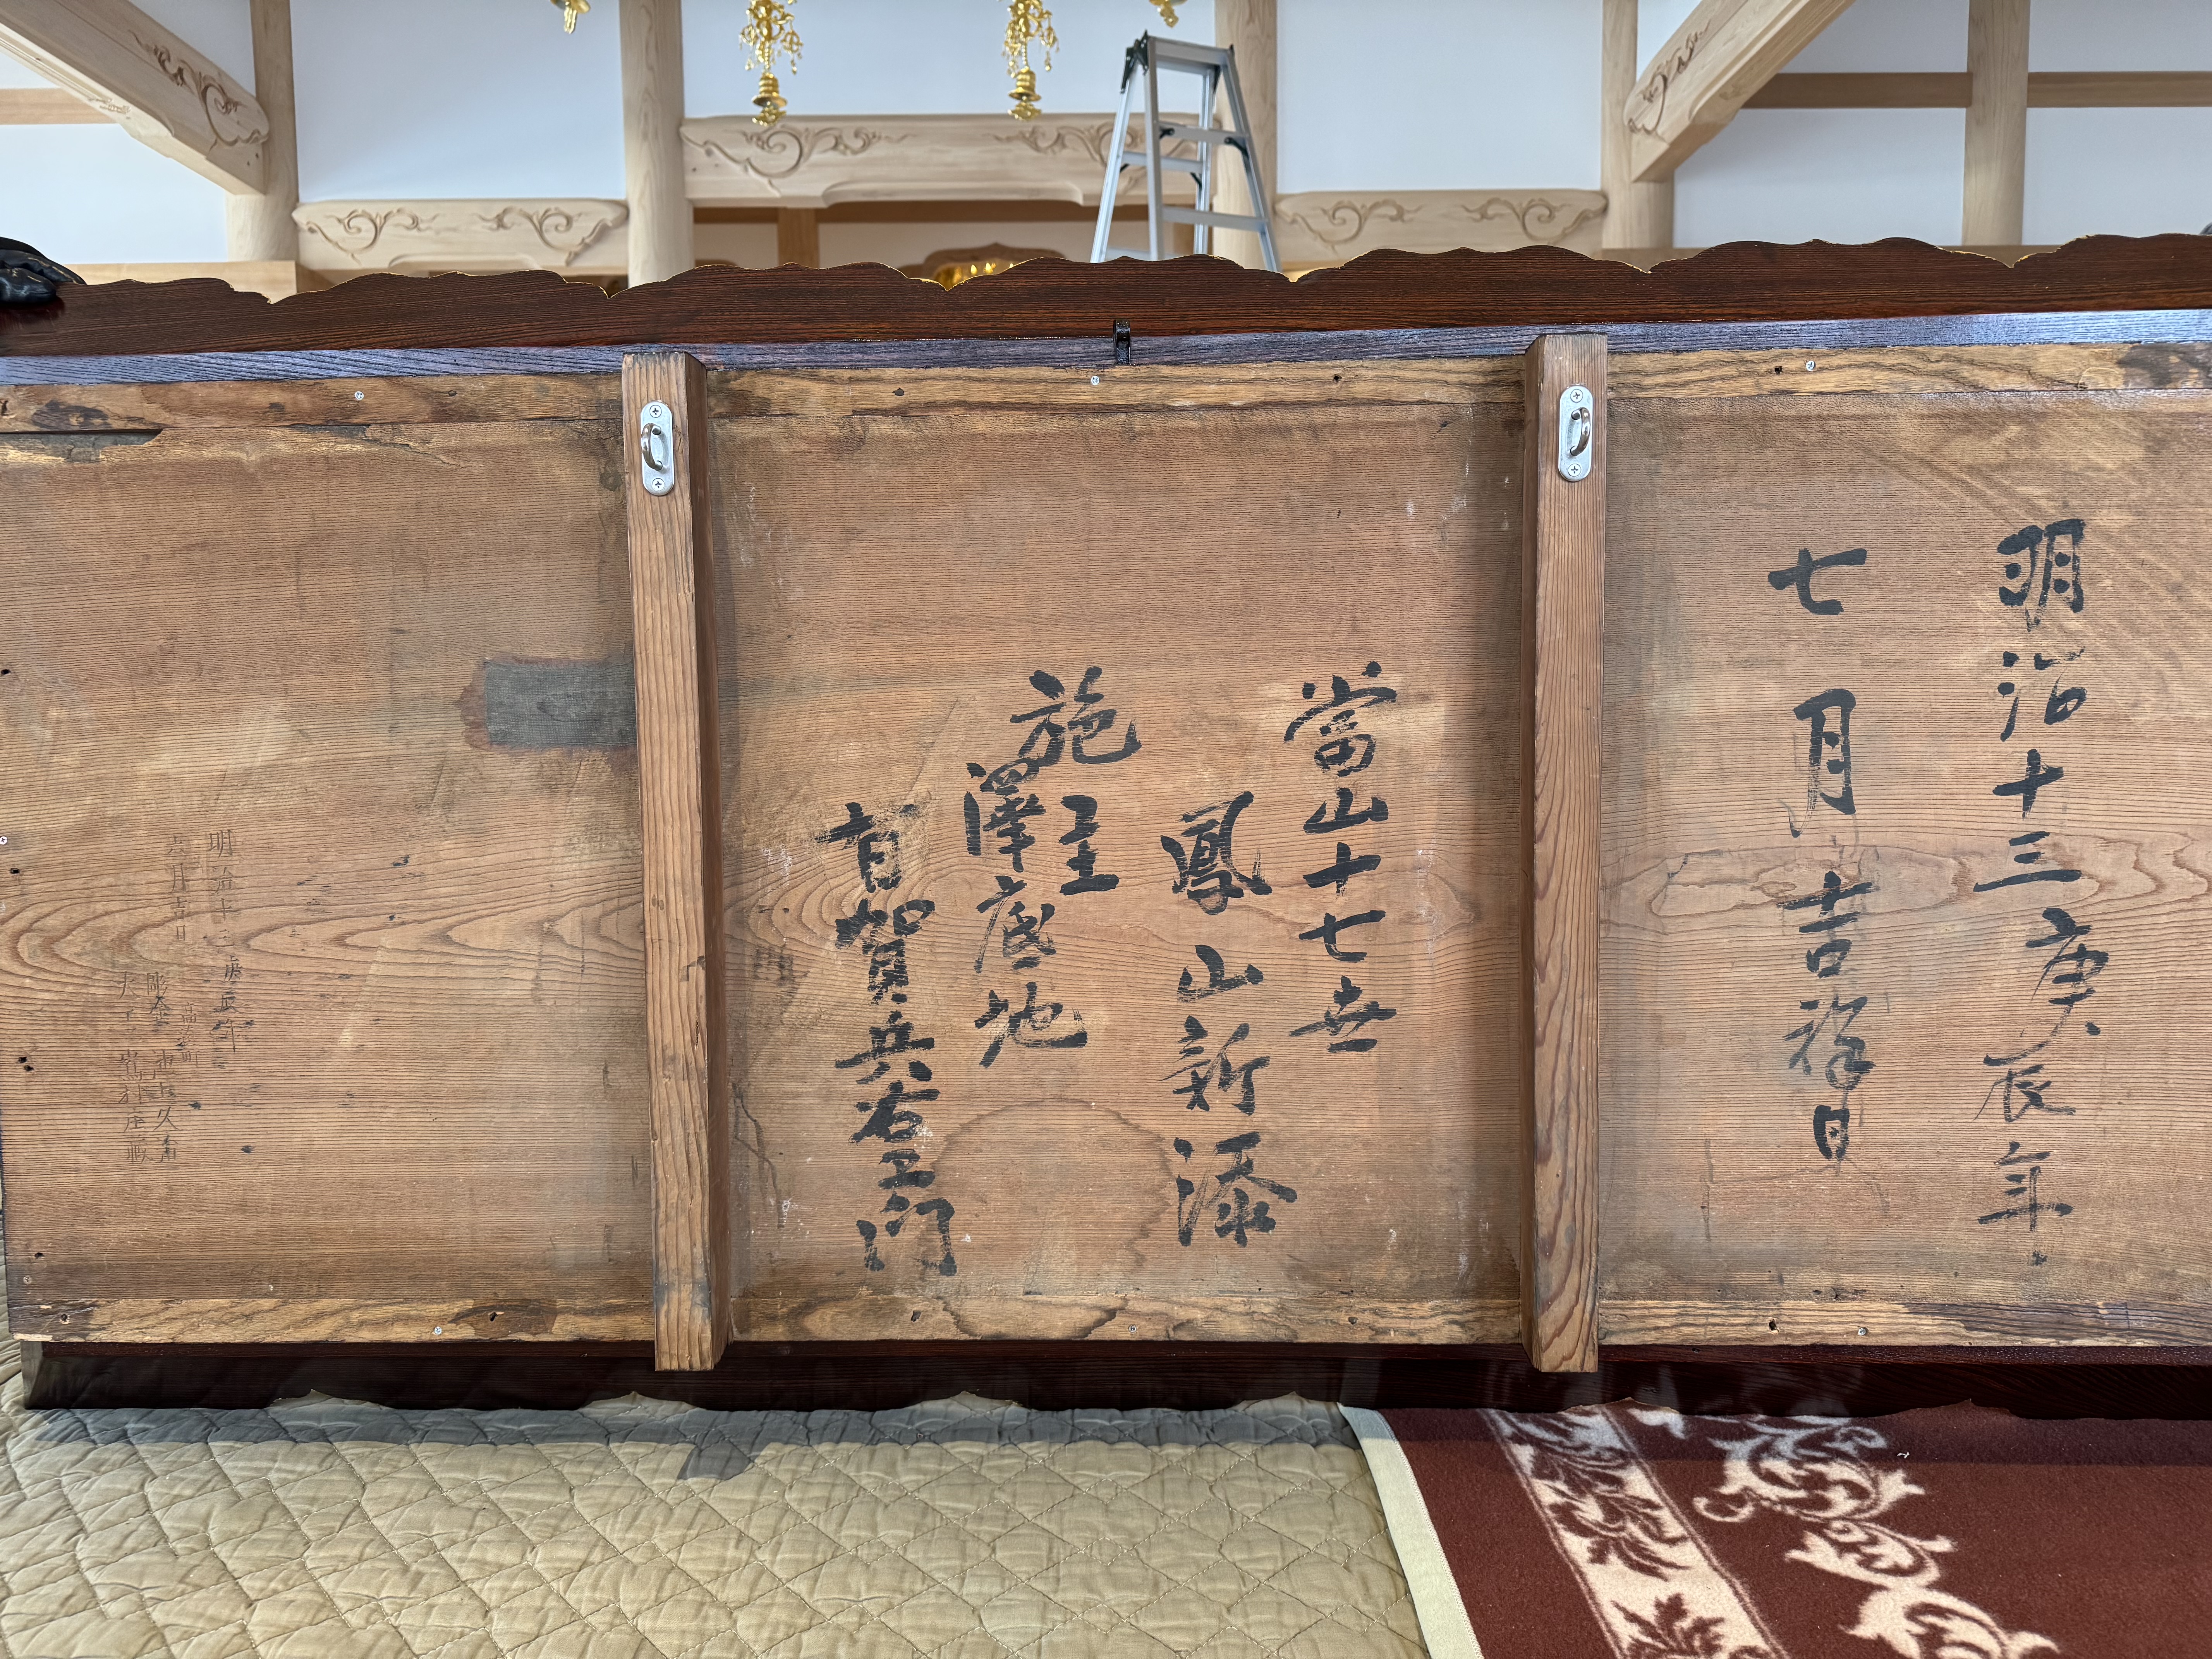 明治十三庚辰年
七月吉祥日
當山十七世
鳳山新添
施主
澤底地
有賀兵右エ門
明治十三庚辰年
六月吉日
彫金